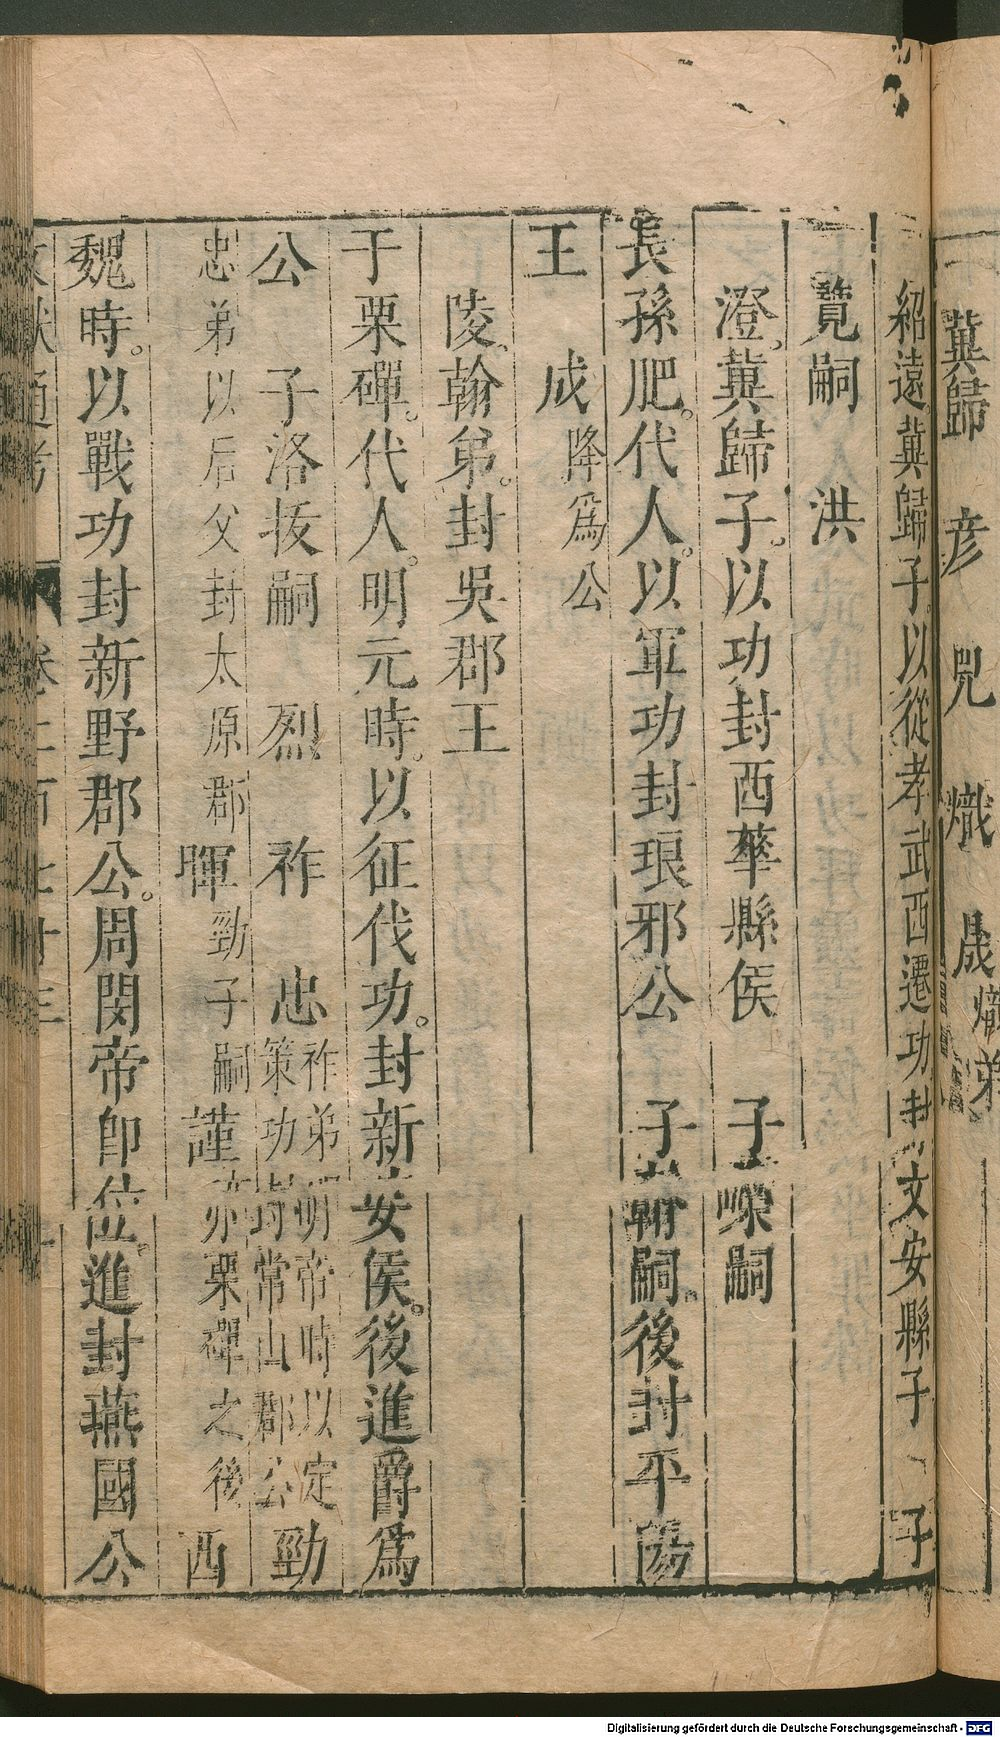 冀歸　彥　兕　熾　晟熾弟
紹遠冀歸子。以從孝武西遷功封文安縣子　子
覽嗣　洪
澄。冀歸子。以功封西華縣侯　子嶸嗣
長孫肥。代人。以軍功封琅邪公　子翰嗣。後封平陽
王　成降爲公
陵。翰弟。封吳郡王
于栗磾。代人。明元時。以征伐功。封新安侯。後進爵爲
公　子洛拔嗣　烈　祚　忠祚弟明帝時以定策功封常山郡公勁
忠弟以后父封太原郡暉勁子嗣謹亦栗磾之後西
魏時。以戰功封新野郡公。周閔帝卽位。進封燕國公
文獻通考　卷二百七十三
Digitalisierung gefördert durch die Deutsche Forschungsgemeinschaft - DFG